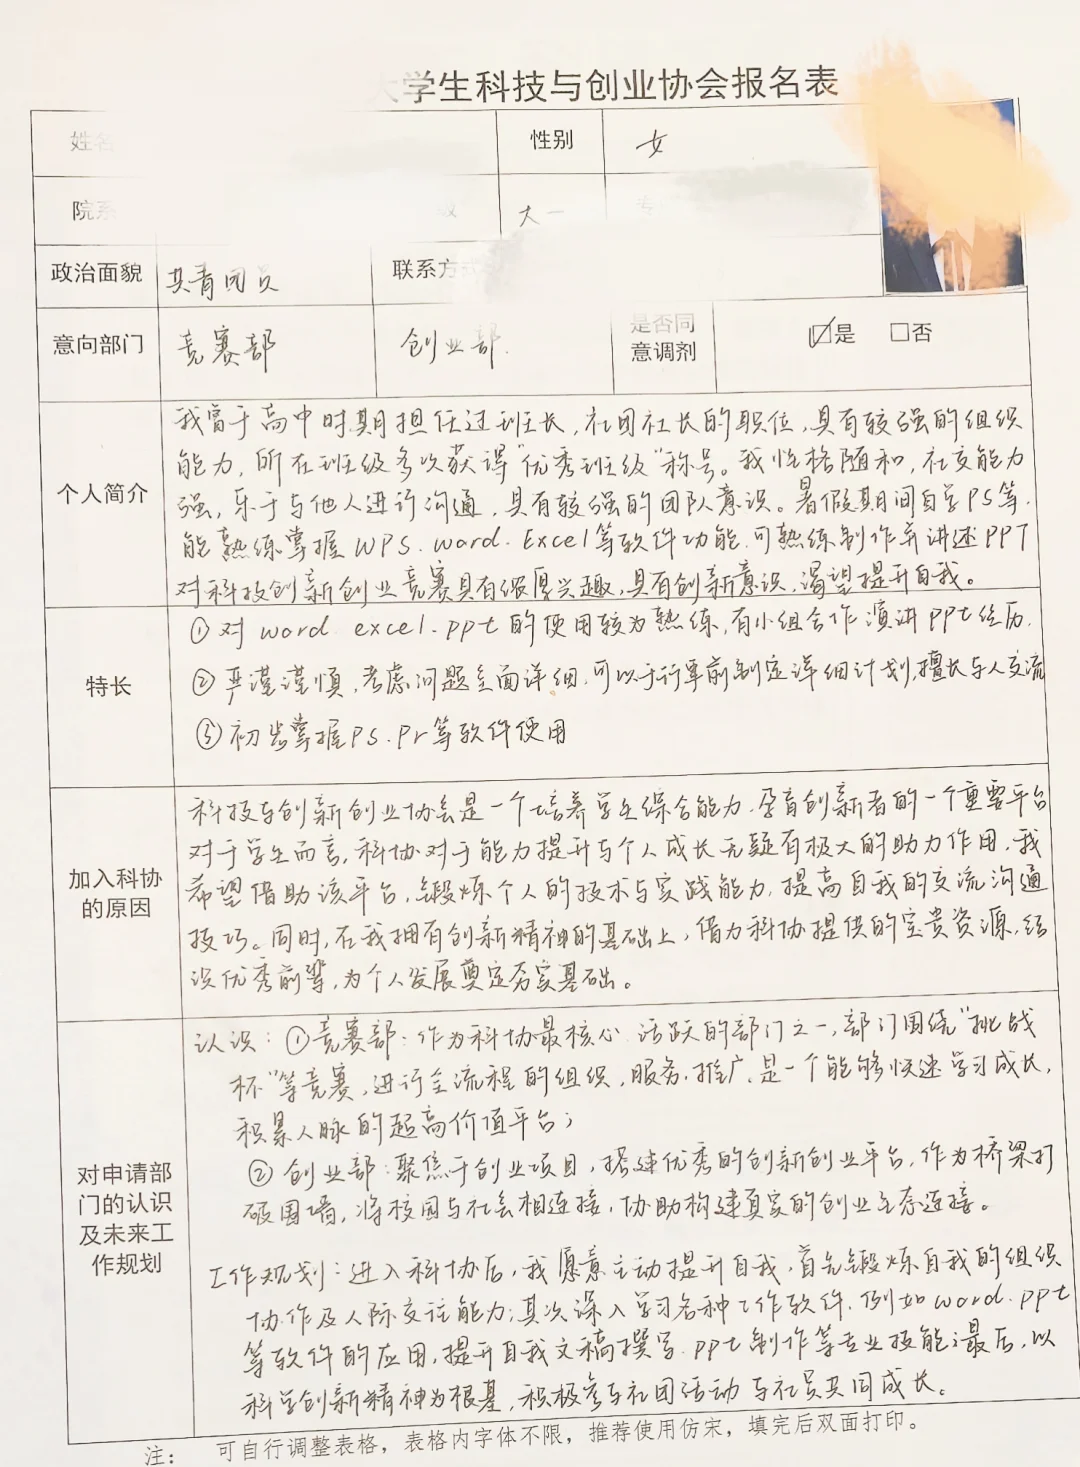 大学生科技与创业协会报名表
姓名
性别
女
院系
级
大一
专
政治面貌
共青团员
联系方式
意向部门
竞赛部
创业部.
是否同
意调剂
☑是 □否
个人简介
我曾于高中时期担任过班长,社团社长的职位,具有较强的组织
能力,所在班级多次获得“优秀班级”称号。我性格随和,社交能力
强,乐于与他人进行沟通,具有较强的团队意识。暑假期间自学PS等.
能熟练掌握WPS.word.Excel等软件功能.可熟练制作并讲述PPT
对科技创新创业竞赛具有很厚兴趣,具有创新意识,渴望提升自我。
特长
①对word.excel.ppt的使用较为熟练,有小组合作演讲ppt经历.
②严谨谨慎,考虑问题全面详细.可以于行事前制定详细计划,擅长与人交流
③初步掌握PS.Pr等软件使用
加入科协
的原因
科技与创新创业协会是一个培养学生综合能力.孕育创新者的一个重要平台
对于学生而言,科协对于能力提升与个人成长无疑有极大的助力作用.我
希望借助该平台,锻炼个人的技术与实践能力,提高自我的交流沟通
技巧。同时,在我拥有创新精神的基础上,借力科协提供的宝贵资源,结
识优秀前辈,为个人发展奠定夯实基础。
对申请部
门的认识
及未来工
作规划
认识:①竞赛部:作为科协最核心 活跃的部门之一,部门围绕“挑战
杯”等竞赛,进行全流程的组织,服务,推广,是一个能够快速学习成长,
积累人脉的超高价值平台;
②创业部:聚焦于创业项目,搭建优秀的创新创业平台,作为桥梁打
破围墙,将校园与社会相连接,协助构建真实的创业生态连接。
工作规划:进入科协后,我愿意主动提升自我,首先锻炼自我的组织
协作及人际交往能力;其次深入学习各种工作软件.例如word.ppt
等软件的应用,提升自我文稿撰写.ppt制作等专业技能;最后,以
科学创新精神为根基,积极参与社团活动与社员共同成长。
注: 可自行调整表格,表格内字体不限,推荐使用仿宋,填完后双面打印。